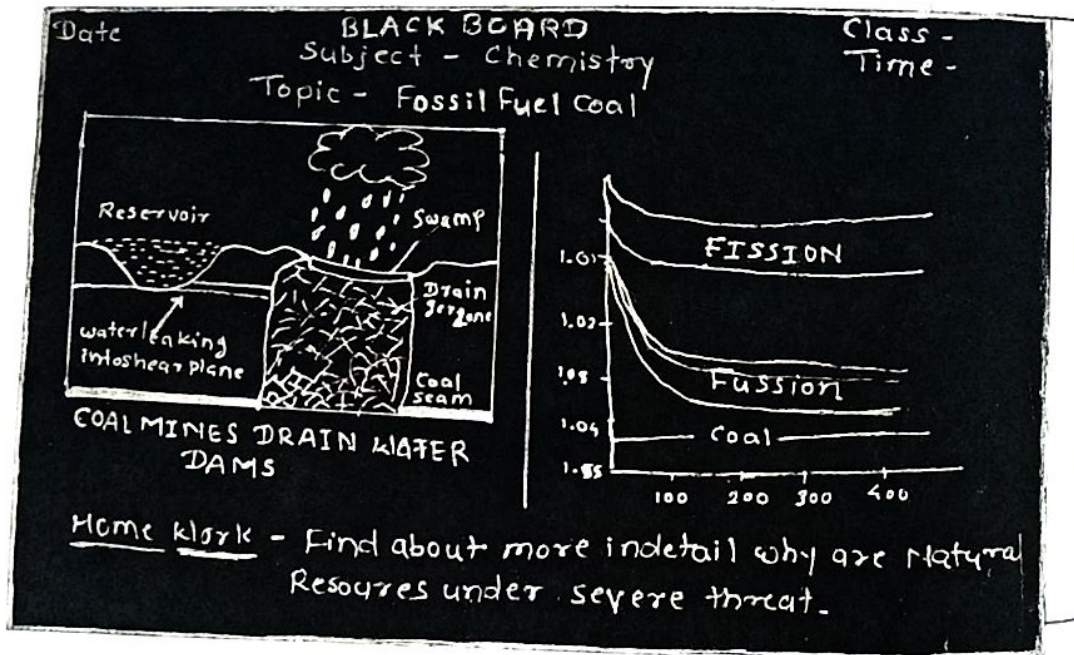 Date
BLACK BOARD
Class -
Subject - Chemistry
Time -
Topic - Fossil Fuel Coal
Reservoir
Swamp
Drain
water leaking
into shear plane
Coal
seam
COAL MINES DRAIN WATER
DAMS
FISSION
1.01
1.02
Fussion
1.04
Coal
100
200
300
400
Home Work - Find about more indetail why are Natural
Resoures under severe threat.